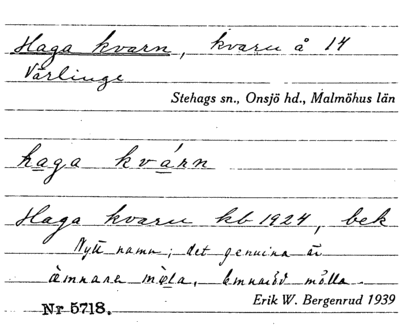 Haga kvarn, kvarn å 14
Värlinge
Stehags sn., Onsjö hd., Malmöhus län
haga kvárn
Haga kvarn kb 1924, bek
Nytt namn; det genuina är
mølla.
Nr 5718. Erik W. Bergenrud 1939